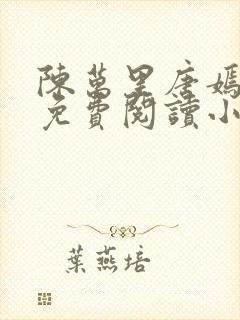 陳萬里唐嫣
免費閱讀小
葉燕培